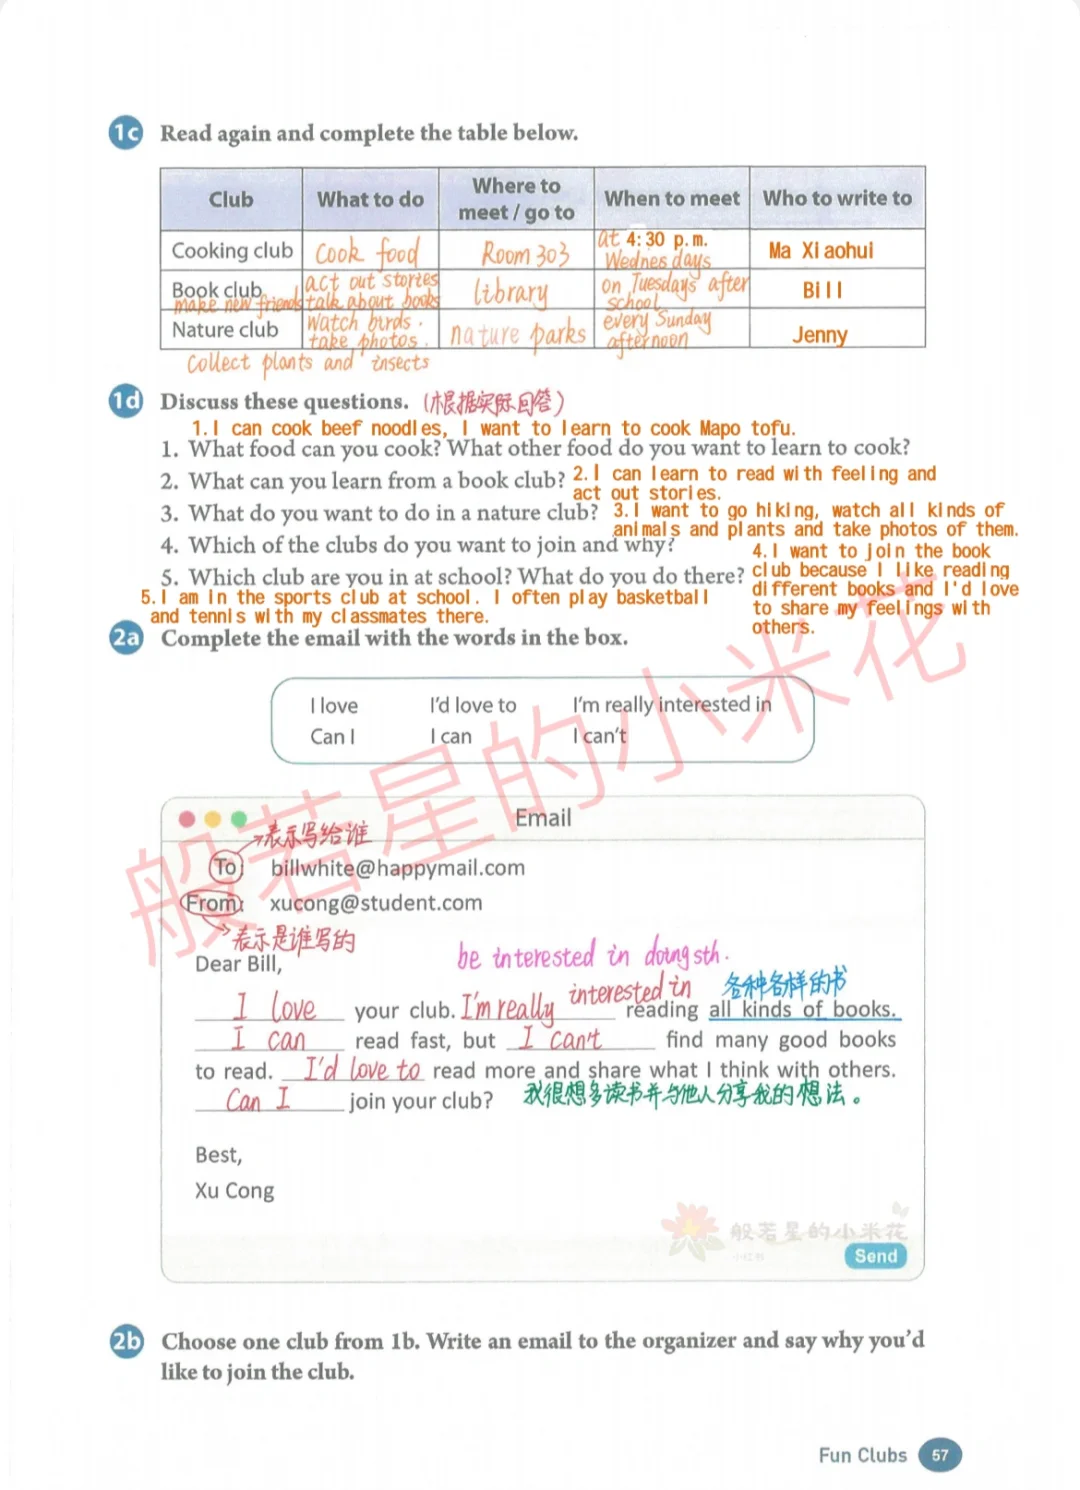 1c Read again and complete the table below.
Club What to do Where to meet / go to When to meet Who to write to
Cooking club Cook food Room 303 at 4:30 p.m. Wednesdays Ma Xiaohui
Book club act out stories talk about books make new friends library on Tuesdays after school Bill
Nature club Watch birds. take photos. nature parks every Sunday afternoon Jenny
Collect plants and insects
1d Discuss these questions. (根据实际回答)
1.I can cook beef noodles, I want to learn to cook Mapo tofu.
1. What food can you cook? What other food do you want to learn to cook?
2. What can you learn from a book club? 2.I can learn to read with feeling and
act out stories.
3. What do you want to do in a nature club? 3.I want to go hiking, watch all kinds of
animals and plants and take photos of them.
4. Which of the clubs do you want to join and why?
4.I want to join the book
club because I like reading
different books and I'd love
to share my feelings with
others.
5. Which club are you in at school? What do you do there?
5.I am in the sports club at school. I often play basketball
and tennis with my classmates there.
2a Complete the email with the words in the box.
I love I'd love to I'm really interested in
Can I I can I can't
Email
表示写给谁
To: billwhite@happymail.com
From: xucong@student.com
表示是谁写的
Dear Bill,
be interested in doing sth.
各种各样的书
I love your club. I'm really interested in reading all kinds of books.
I can read fast, but I can't find many good books
to read. I'd love to read more and share what I think with others.
Can I join your club? 我很想多读书并与他人分享我的想法。
Best,
Xu Cong
般若星的小米花
般若星的小米花
小红书
Send
2b Choose one club from 1b. Write an email to the organizer and say why you'd
like to join the club.
Fun Clubs 57